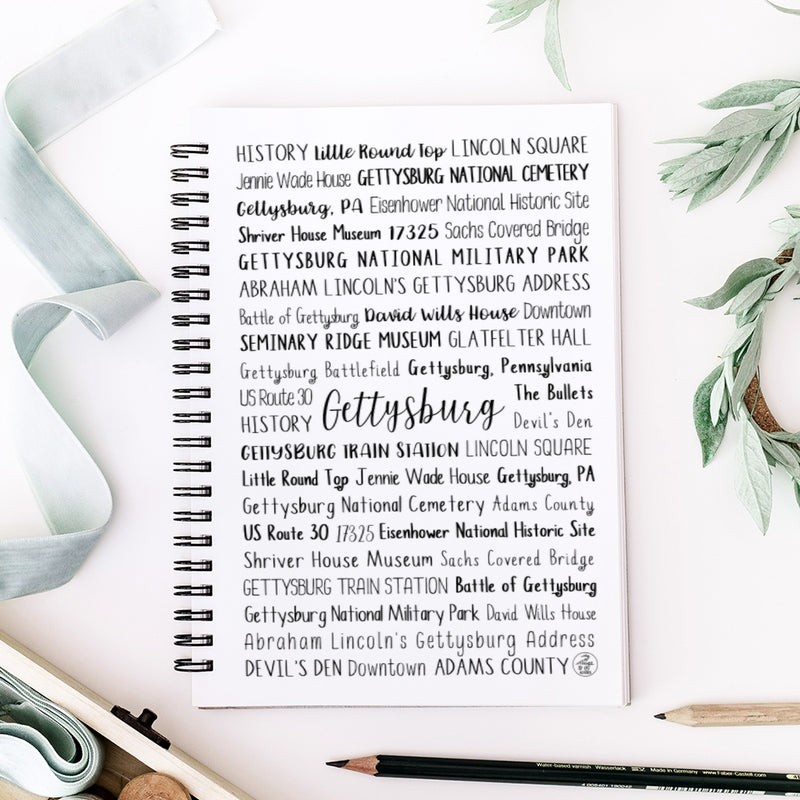 HISTORY Little Round Top LINCOLN SQUARE
Jennie Wade House GETTYSBURG NATIONAL CEMETERY
Gettysburg, PA Eisenhower National Historic Site
Shriver House Museum 17325 Sachs Covered Bridge
GETTYSBURG NATIONAL MILITARY PARK
ABRAHAM LINCOLN'S GETTYSBURG ADDRESS
Battle of Gettysburg David Wills House Downtown
SEMINARY RIDGE MUSEUM GLATFELTER HALL
Gettysburg Battlefield Gettysburg, Pennsylvania
US Route 30 The Bullets
HISTORY Gettysburg Devil's Den
GETTYSBURG TRAIN STATION LINCOLN SQUARE
Little Round Top Jennie Wade House Gettysburg, PA
Gettysburg National Cemetery Adams County
US Route 30 17325 Eisenhower National Historic Site
Shriver House Museum Sachs Covered Bridge
GETTYSBURG TRAIN STATION Battle of Gettysburg
Gettysburg National Military Park David Wills House
Abraham Lincoln's Gettysburg Address
DEVIL'S DEN Downtown ADAMS COUNTY
Water-based varnish Wasserlack Made in Germany www.Faber-Castell.com